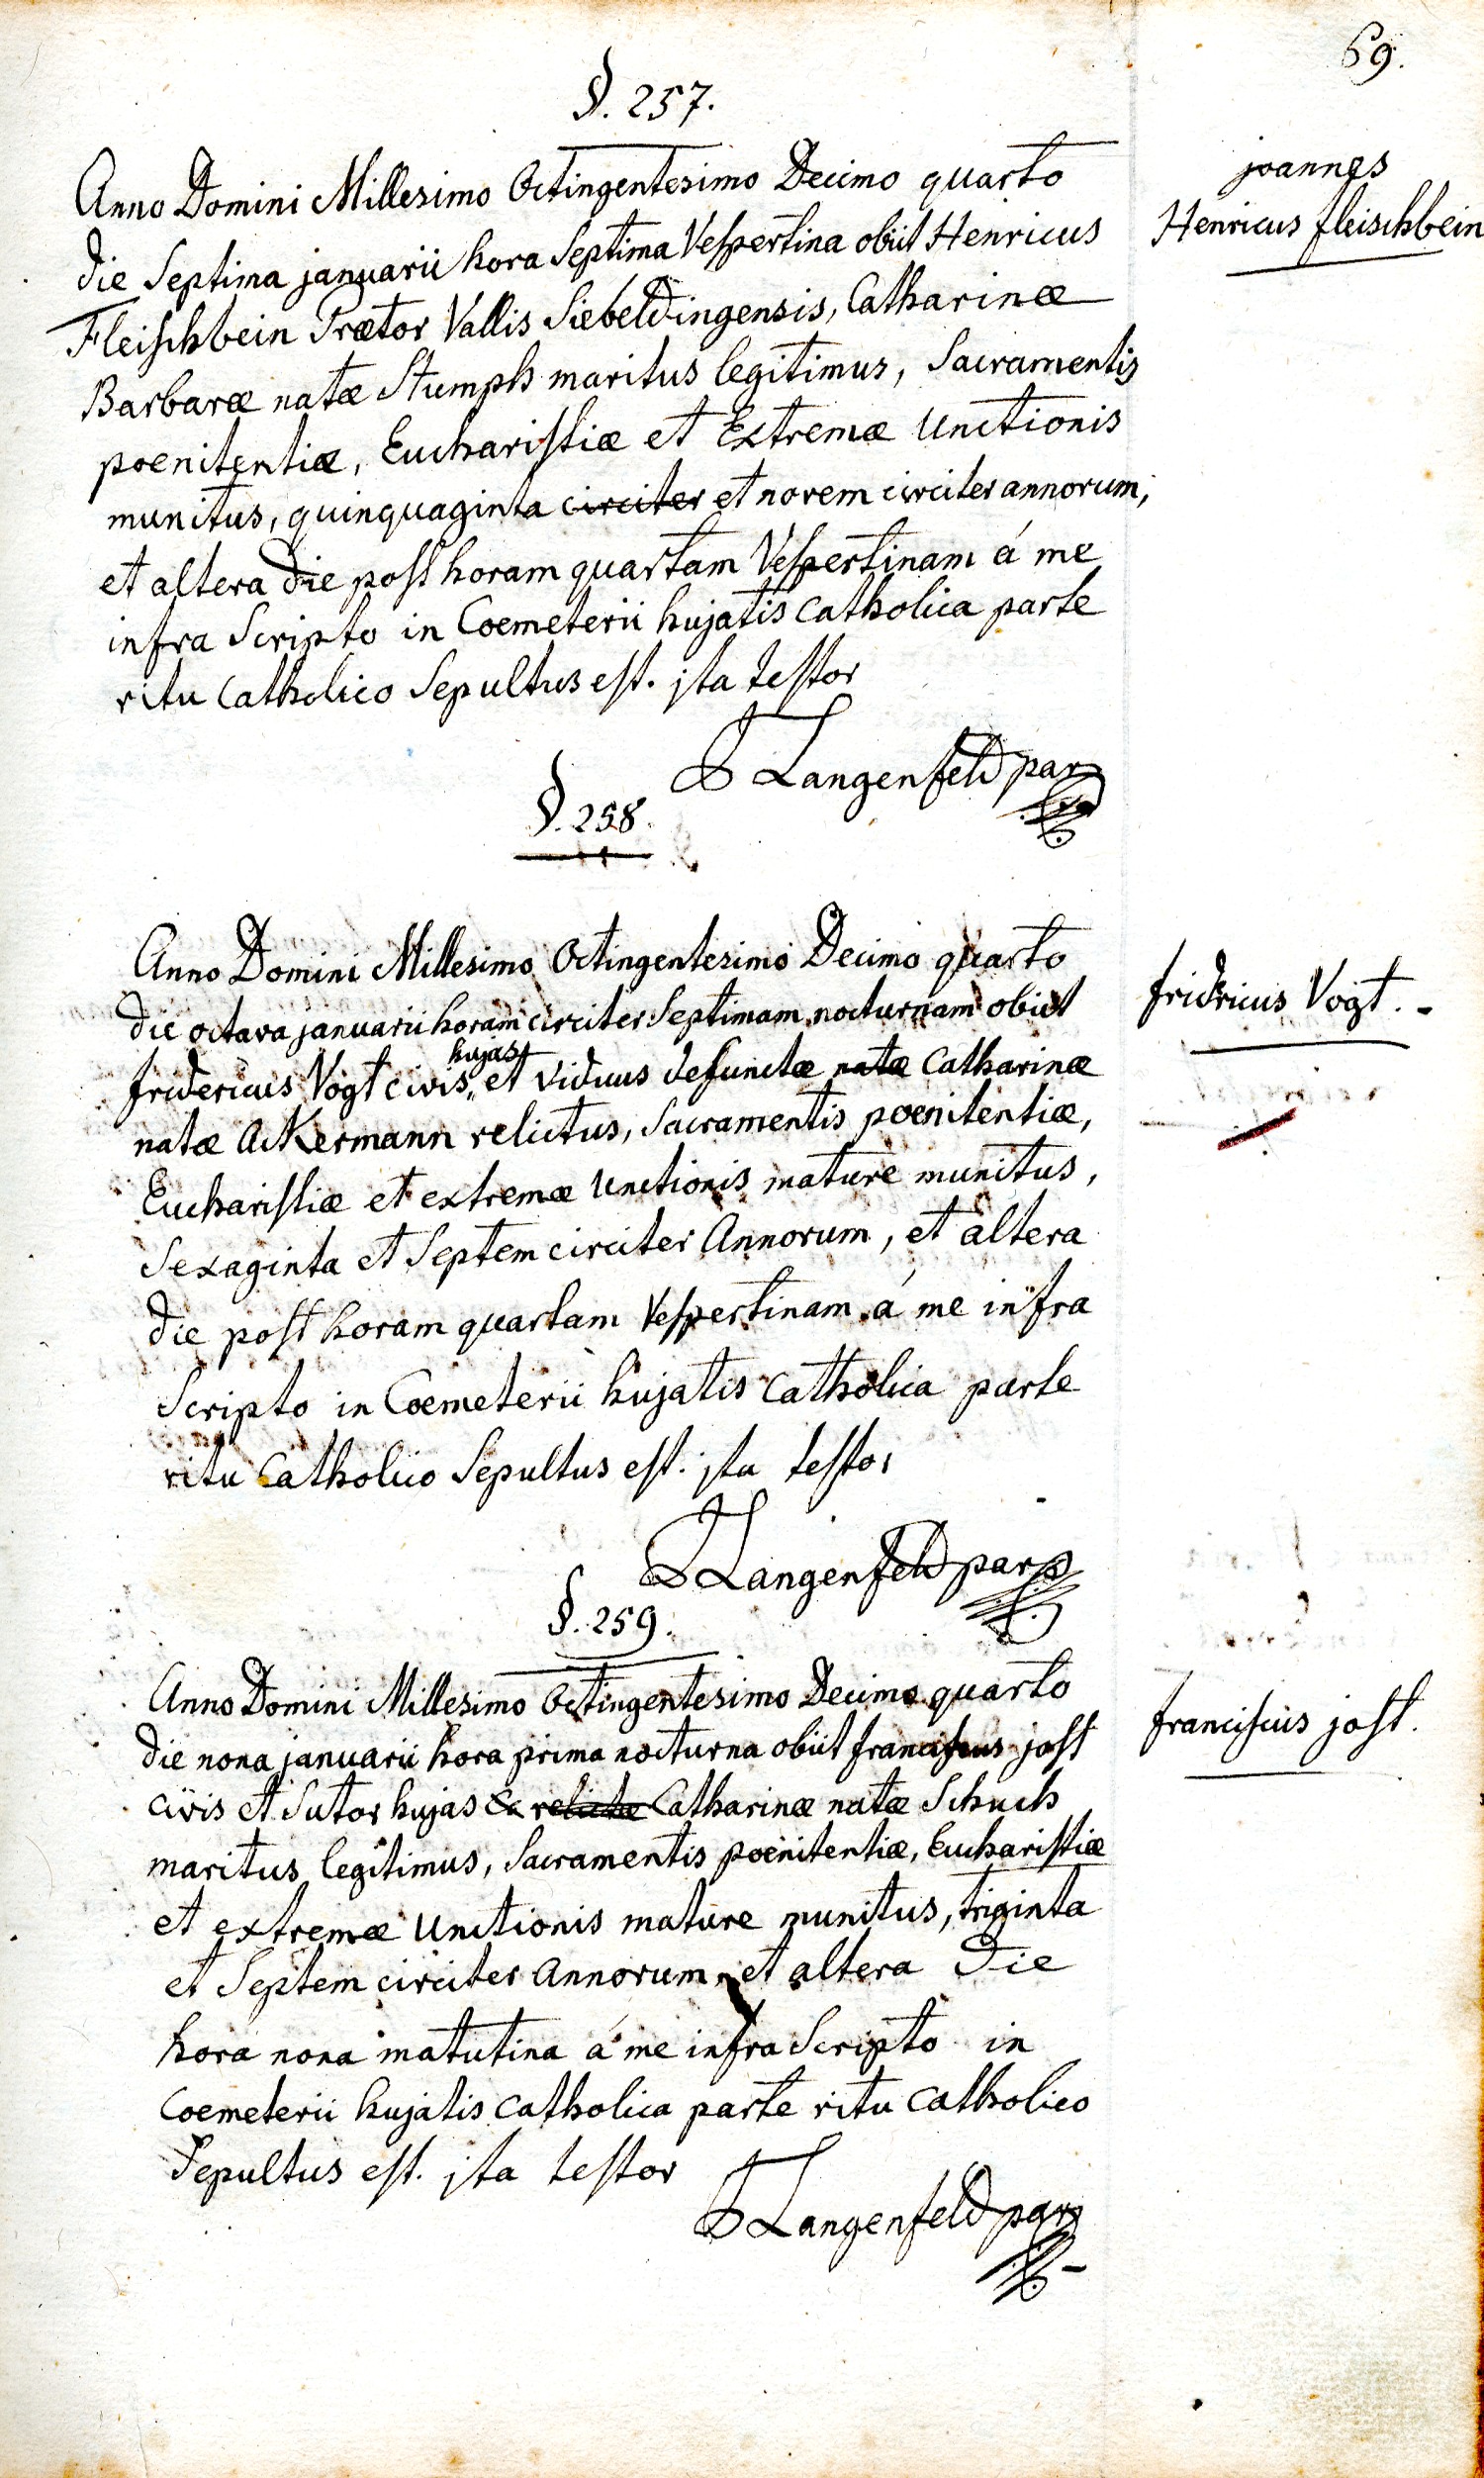 69.
§. 257.
Anno Domini Millesimo Octingentesimo Decimo quarto
die Septima januarii hora Septima Vespertina obiit Henricus
Fleischbein Prætor Vallis Siebeldingensis, Catharinæ
Barbaræ natæ Stumph maritus legitimus, Sacramentis
poenitentiæ, Eucharistiæ et Extremæ Unctionis
munitus, quinquaginta circiter et novem circiter annorum,
et altera die post horam quartam Vespertinam á me
infra Scripto in Coemeterii hujatis Catholica parte
ritu Catholico Sepultus est. jta testor
Langenfeld par
joannes
Henricus fleischbein
§. 258.
Anno Domini Millesimo Octingentesimo Decimo quarto
die octava januarii horam circiter Septimam nocturnam obiit
hujas
fridericus Vogt civis et viduus defunctæ natæ Catharinæ
natæ Ackermann relictus, Sacramentis poenitentiæ,
Eucharistiæ et extremæ Unctionis mature munitus,
Sexaginta et Septem circiter Annorum, et altera
die post horam quartam Vespertinam á me infra
Scripto in Coemeterii hujatis Catholica parte
ritu Catholico Sepultus est. jta testor
Langenfeld par
fridricus Vogt.
§. 259.
Anno Domini Millesimo Octingentesimo Decimo quarto
die nona januarii hora prima nocturna obiit franciscus jost
civis et Sutor hujas & relictæ Catharinæ natæ Schuch
maritus legitimus, Sacramentis poenitentiæ, Eucharistiæ
et extremæ Unctionis mature munitus, triginta
et Septem circiter Annorum, et altera die
hora nona matutina á me infra Scripto in
Coemeterii hujatis Catholica parte ritu Catholico
Sepultus est. jta testor
Langenfeld par
franciscus jost.